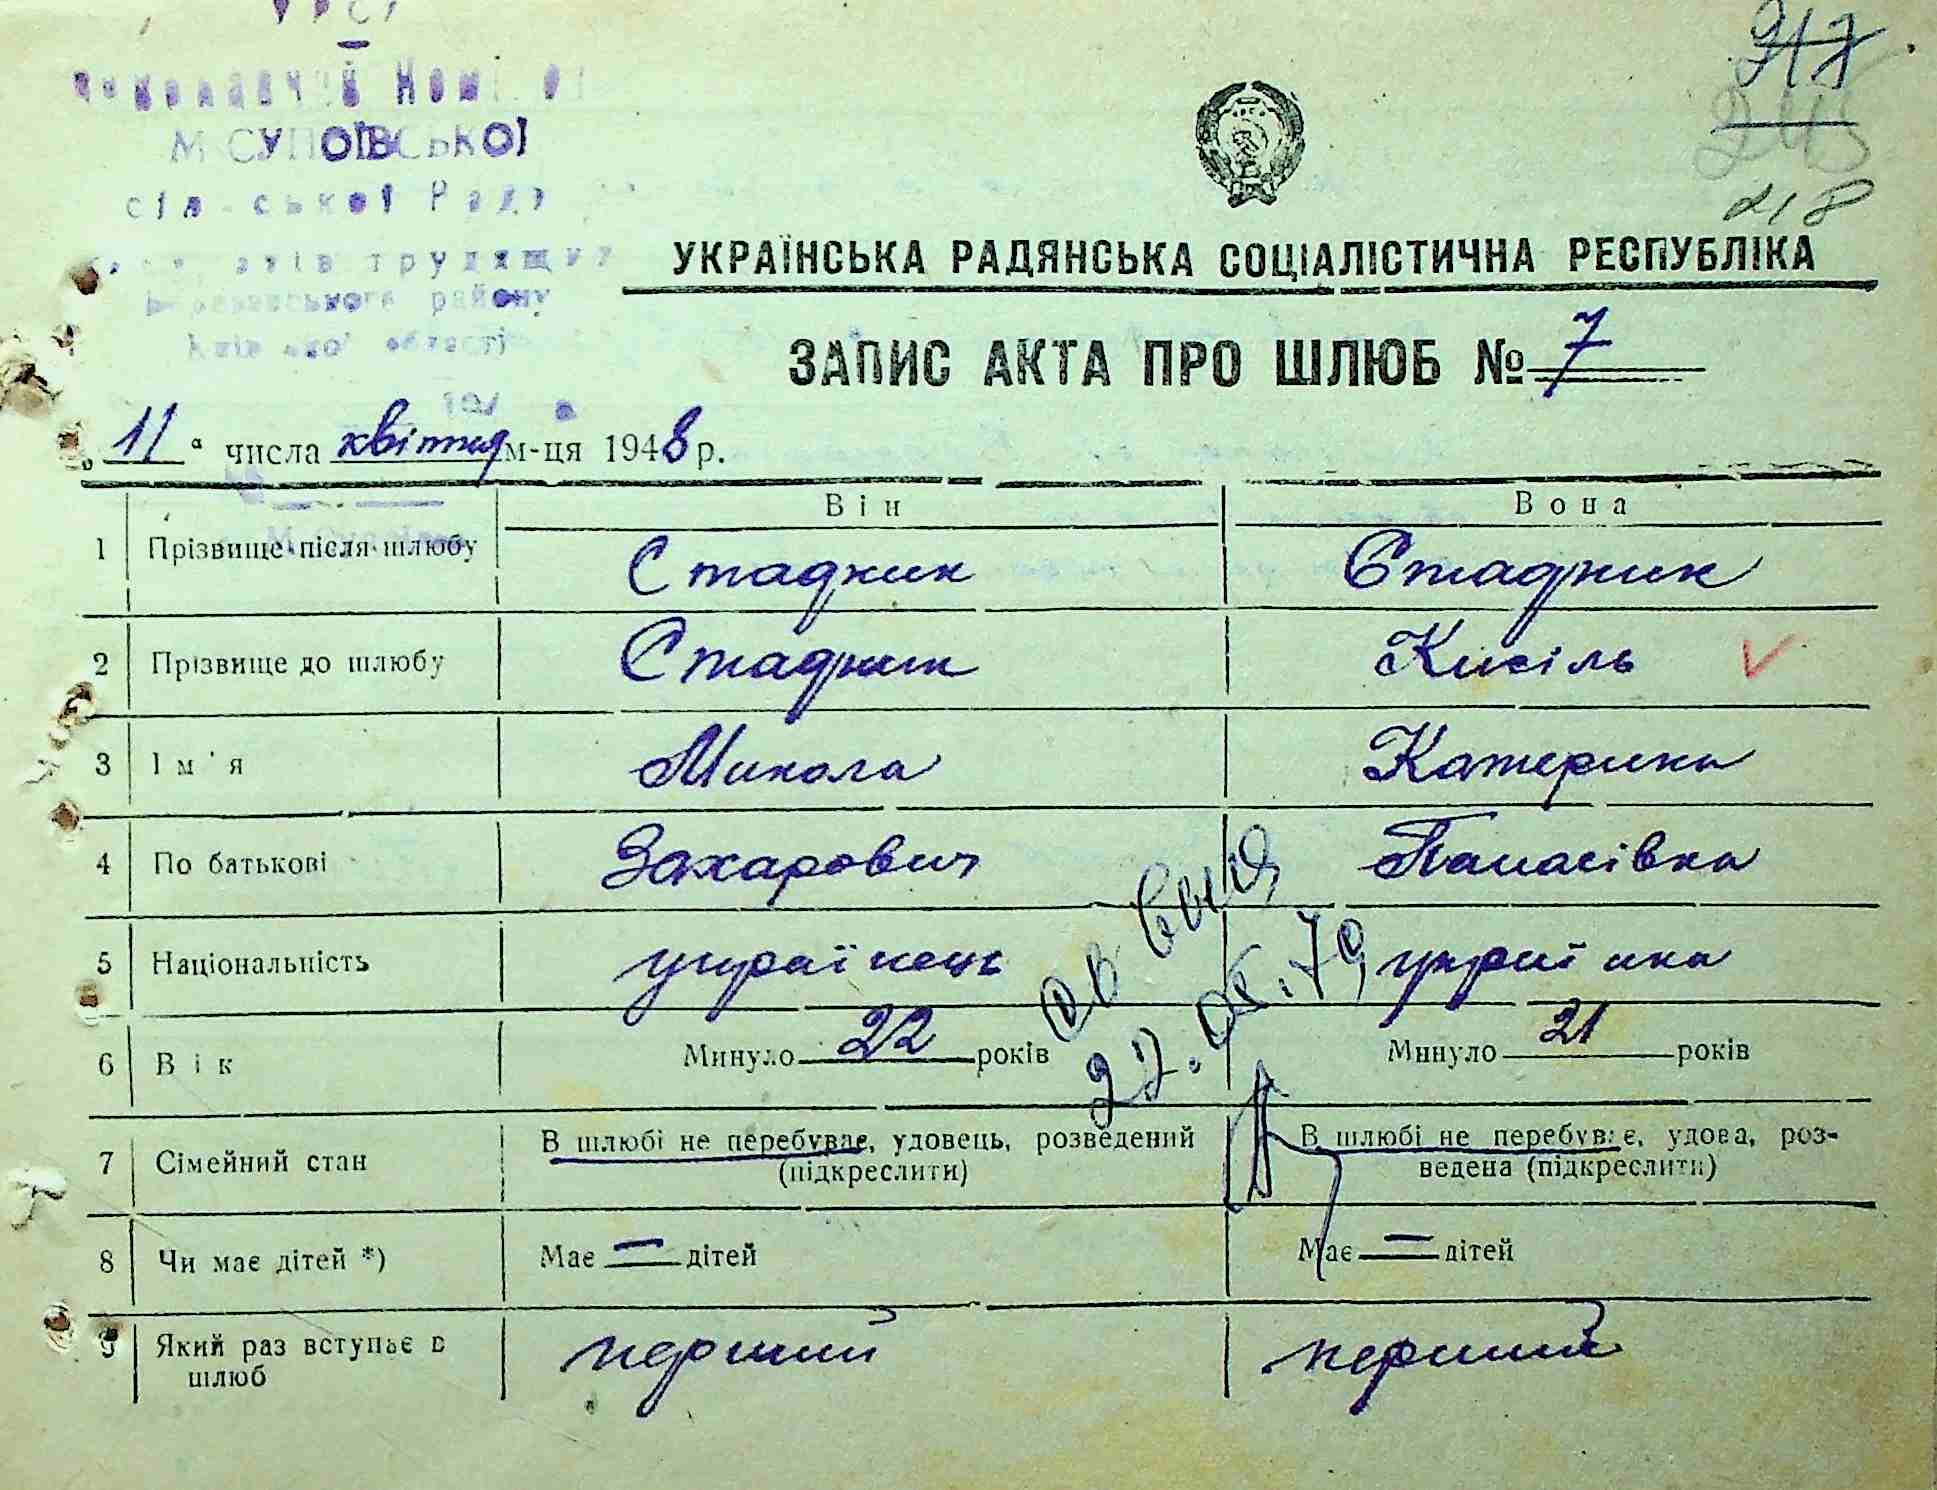 УРСР
Виконавчий Комітет
М-СУПОЇВСЬКОЇ
сільської Ради
депутатів трудящих
району
Київської області
217
218
УКРАЇНСЬКА РАДЯНСЬКА СОЦІАЛІСТИЧНА РЕСПУБЛІКА
ЗАПИС АКТА ПРО ШЛЮБ № 7
„11“ числа квітня м-ця 1948 р.
Він Вона
1 Прізвище після шлюбу Стадник Стадник
2 Прізвище до шлюбу Стадник Кисіль
3 Ім'я Микола Катерина
4 По батькові Захарович Панасівна
5 Національність українець українка
6 Вік Минуло 22 років Минуло 21 років
27.08.79
7 Сімейний стан В шлюбі не перебуває, удовець, розведений (підкреслити) В шлюбі не перебуває, удова, роз-
ведена (підкреслити)
8 Чи має дітей *) Має — дітей Має — дітей
9 Який раз вступає в шлюб перший перший